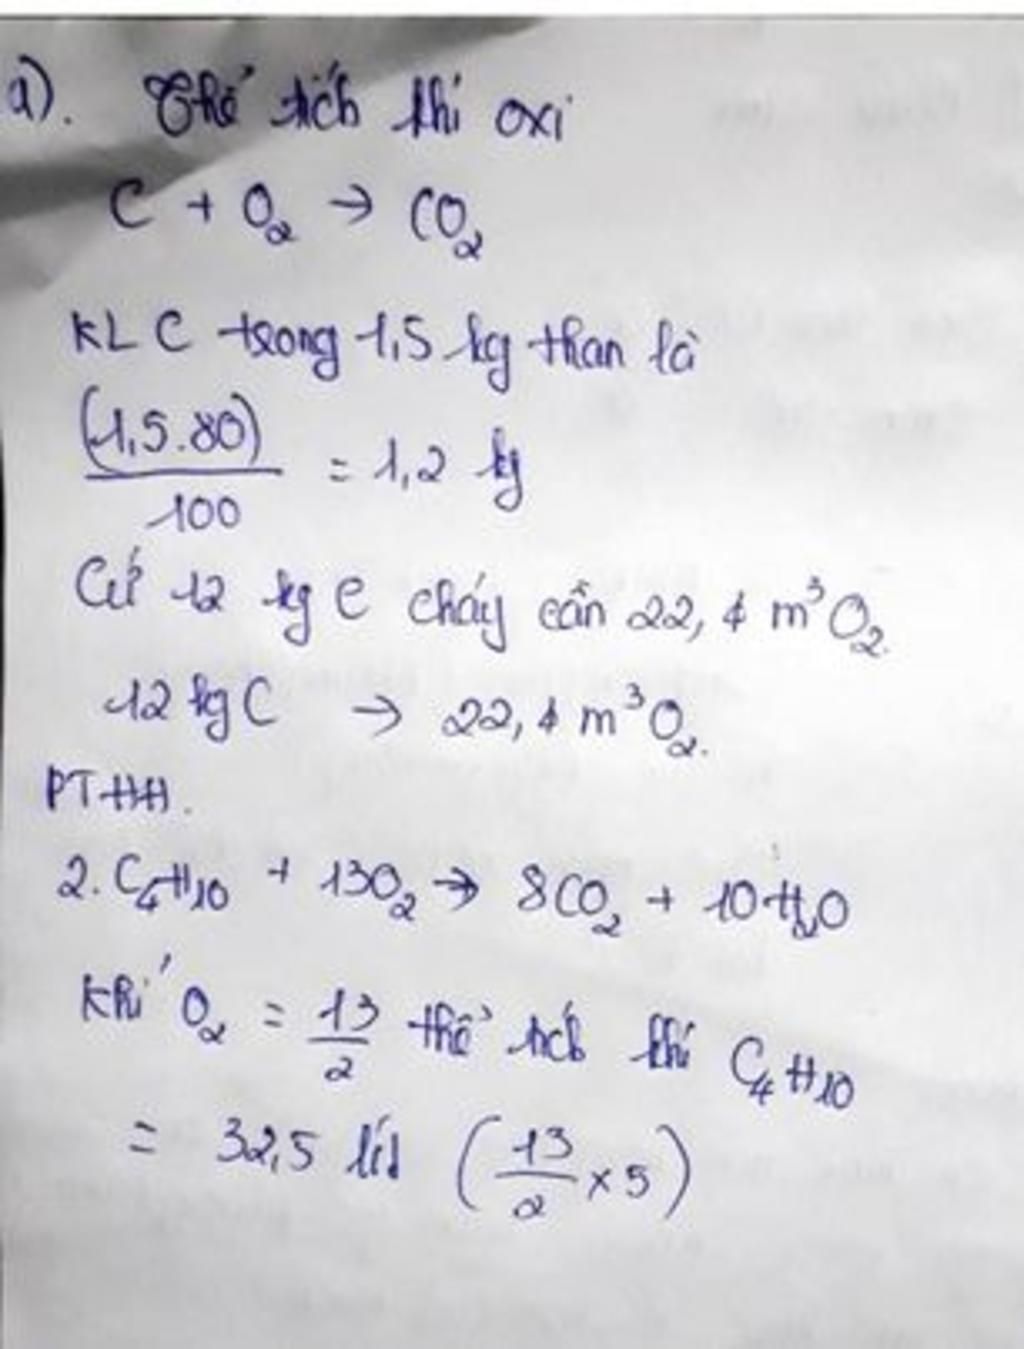 a). Thể tích khí oxi
C + O₂ → CO₂
KL C trong 1,5 kg than là
(1,5.80)/100 = 1,2 kg
Cứ 12 kg C cháy cần 22,4 m³ O₂.
12 kg C → 22,4 m³ O₂.
PTHH.
2. C₄H₁₀ + 13O₂ → 8CO₂ + 10H₂O
Khí O₂ = 13/2 thể tích khí C₄H₁₀
= 32,5 lít (13/2 × 5)